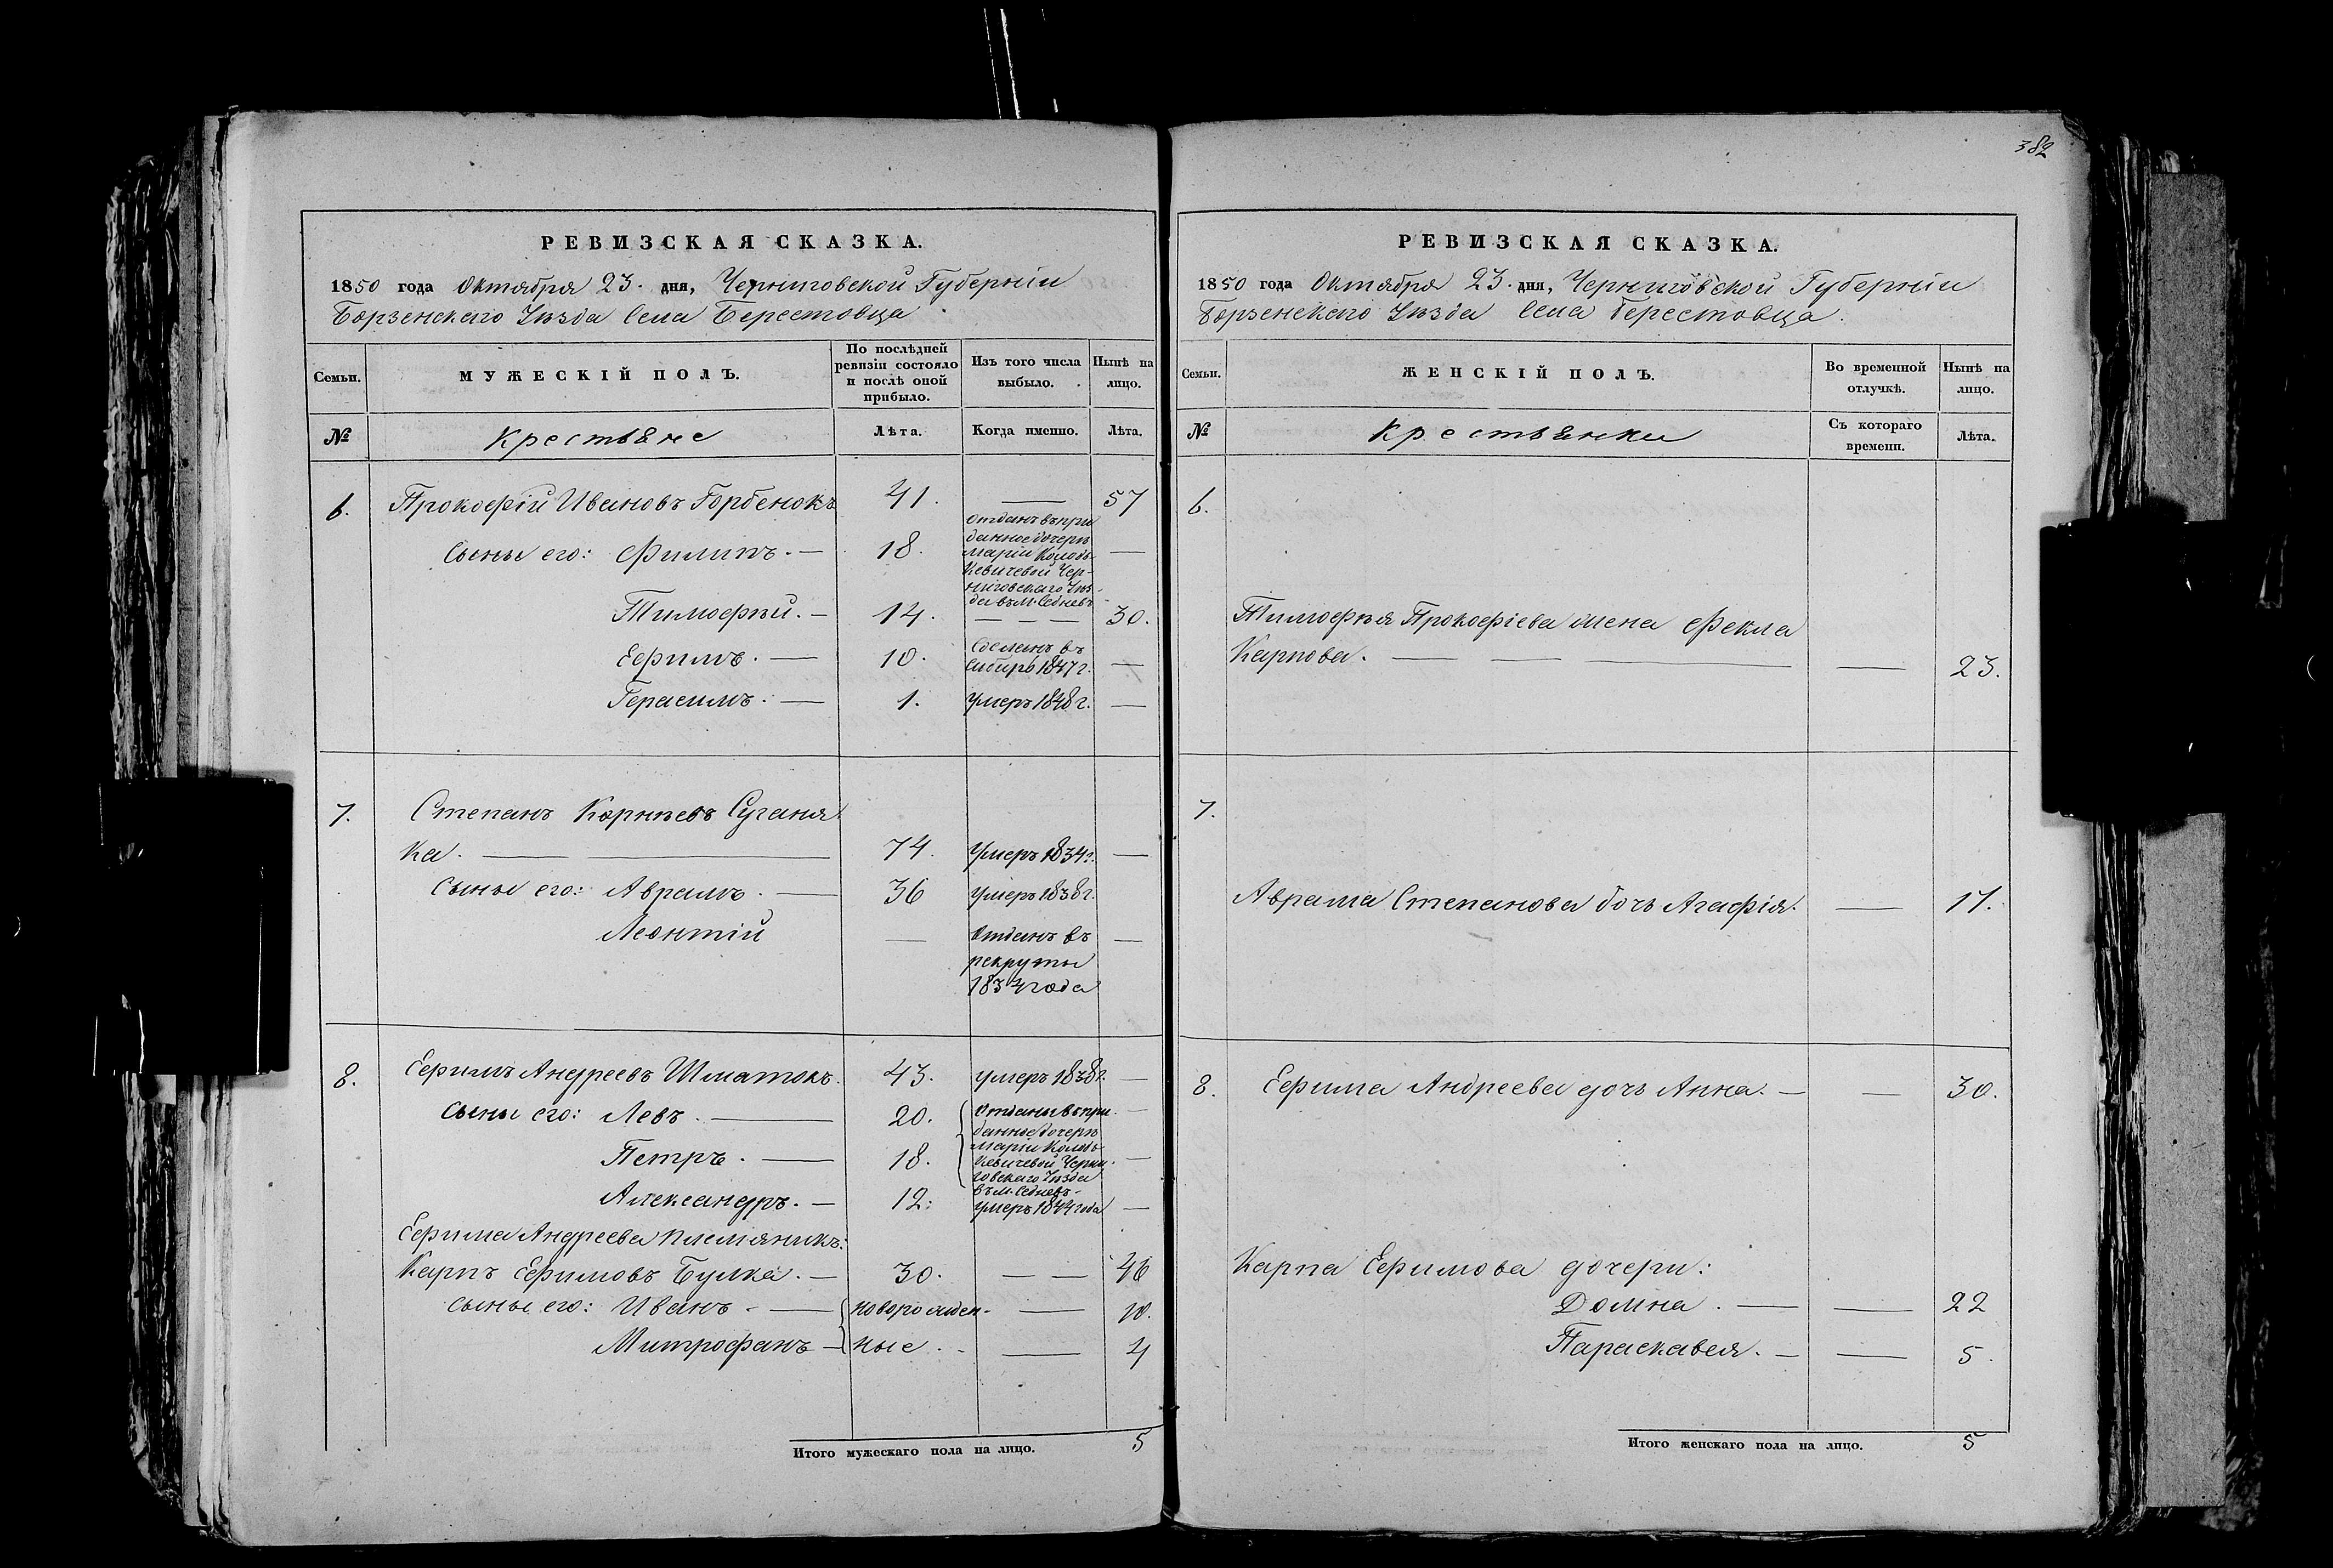 382
РЕВИЗСКАЯ СКАЗКА.
1850 года Октября 23. дня, Черниговской Губерніи
Борзенскаго Уѣзда Села Берестовца
Семьи.
МУЖЕСКІЙ ПОЛЪ.
По послѣдней ревизіи состояло и послѣ оной прибыло.
Изъ того числа выбыло.
Нынѣ на лицо.
№
Крестьяне
Лѣта.
Когда именно.
Лѣта.
6. Прокофій Ивановъ Горбенокъ 41. — 57
Сыны его: Филипъ. — 18. Отданъ въ при
данное дочери
Маріи Колодь-
кевичевой Чер-
ниговскаго Уѣз-
да въ М. Седневъ —
Тимофѣй. — 14. — — — 30.
Ефимъ. — 10. Сосланъ въ
Сибирь 1847 г. —
Герасимъ. — 1. Умеръ 1848 г. —
7. Степанъ Корнѣевъ Суганя
ка. — — 74. Умеръ 1834 г. —
Сыны его: Аврамъ. — 36 Умеръ 1838 г.
Леонтій — Отданъ въ —
рекруты
1834 года
8. Ефимъ Андреевъ Шматокъ. 43. Умеръ 1838 г. —
Сыны его: Левъ. — 20. Отданы въ при- —
данное дочери
Маріи Колодь-
Петръ. — 18. кевичевой Черни- —
говскаго Уѣзда
въ М. Седневъ-
Александръ. — 12: Умеръ 1844 года —
Ефима Андреева племяникъ:
Карпъ Ефимовъ Булка. — 30. — — 46
Сыны его: Иванъ — новорожден- — 10.
Митрофанъ — ные. — 4
Итого мужескаго пола на лицо. 5
РЕВИЗСКАЯ СКАЗКА.
1850 года Октября 23. дня, Черниговской Губерніи
Борзенскаго Уѣзда Села Берестовца.
Семьи.
ЖЕНСКІЙ ПОЛЪ.
Во временной отлучкѣ.
Нынѣ на лицо.
№
Крестьянки
Съ котораго времени.
Лѣта.
6.
Тимофѣя Прокофіева жена Фекла
Карпова. — — — — 23.
7.
Аврама Степанова дочь Агафія. — 17.
8. Ефима Андреева дочь Анна. — — 30.
Карпа Ефимова дочери:
Домна. — — 22
Параскавея. — — 5.
Итого женскаго пола на лицо. 5